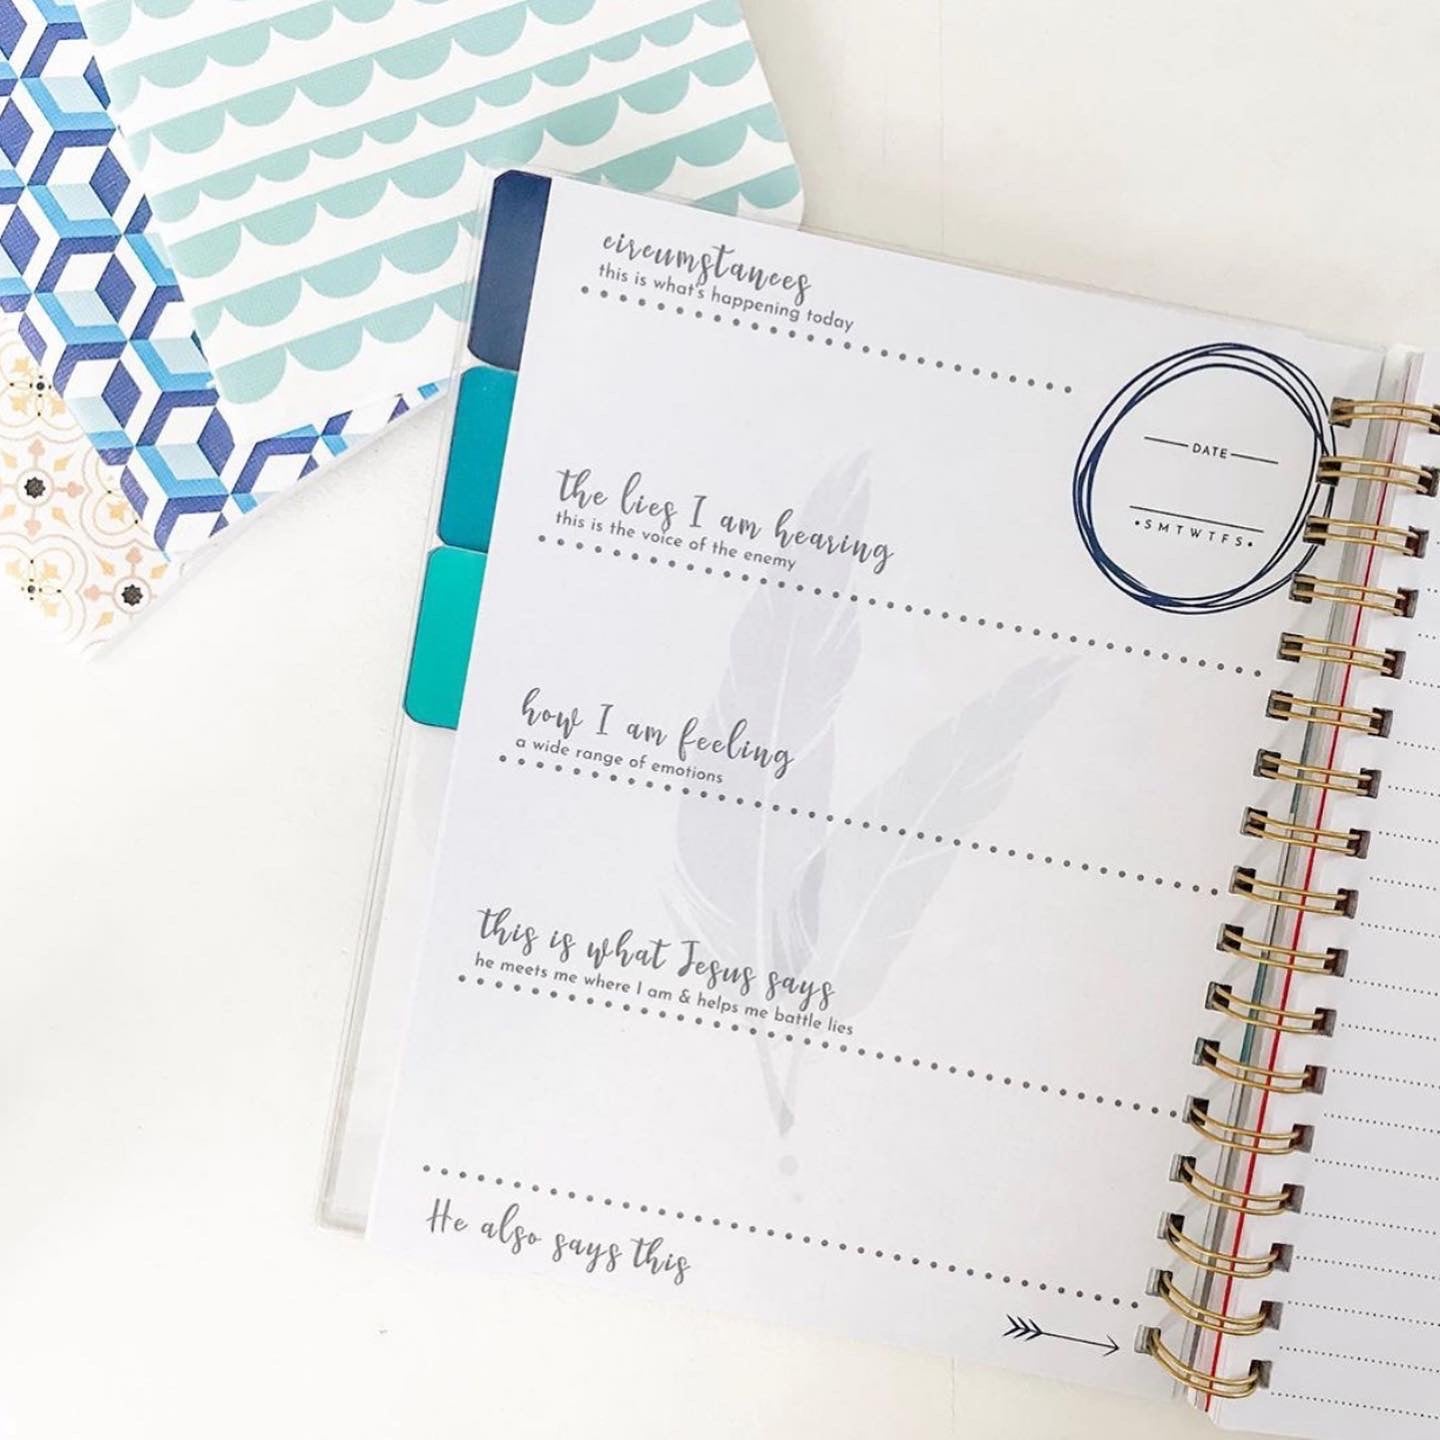 circumstances
this is what's happening today
DATE
•SMTWTFS•
the lies I am hearing
this is the voice of the enemy
how I am feeling
a wide range of emotions
this is what Jesus says
he meets me where I am & helps me battle lies
He also says this